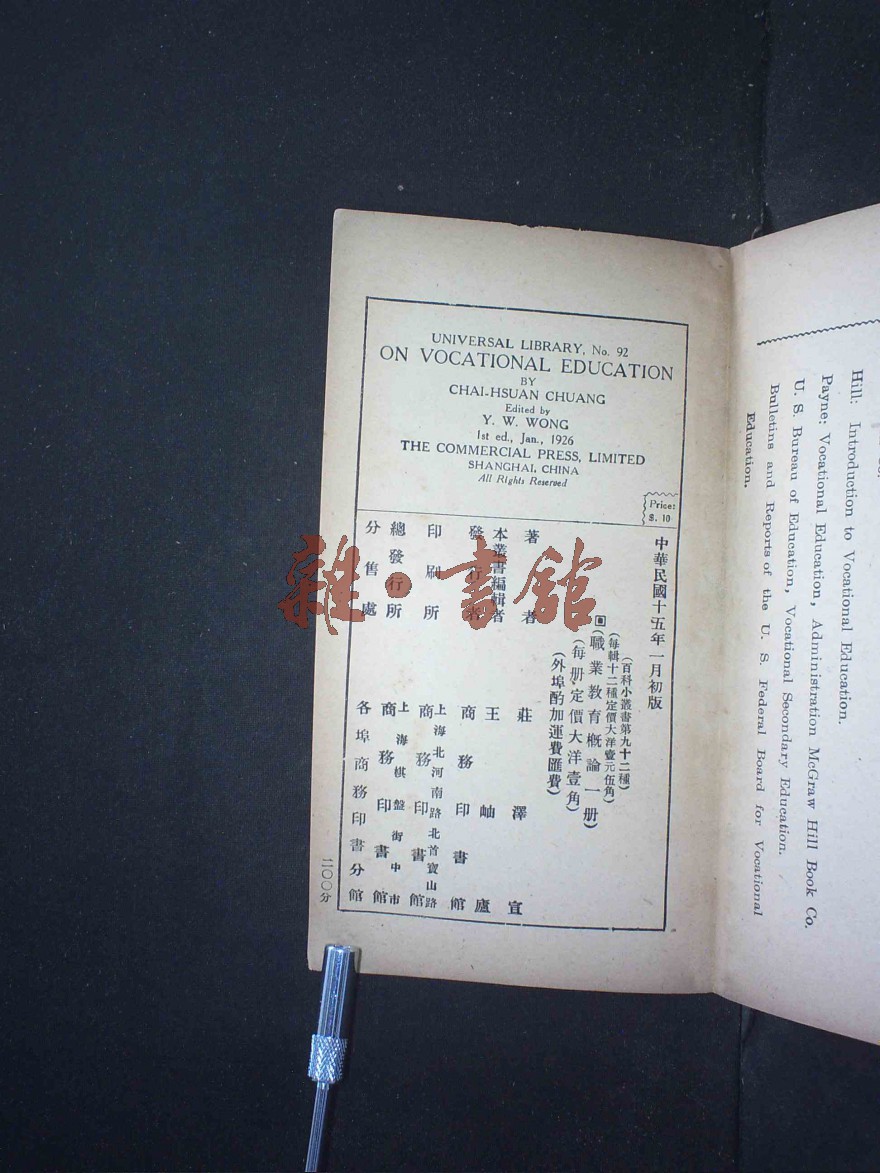 UNIVERSAL LIBRARY, No. 92
ON VOCATIONAL EDUCATION
BY
CHAI-HSUAN CHUANG
Edited by
Y. W. WONG
1st ed., Jan., 1926
THE COMMERCIAL PRESS, LIMITED
SHANGHAI, CHINA
All Rights Reserved
Price:
$. 10
中華民國十五年一月初版
(百科小叢書第九十二種)
(每輯十二種定價大洋壹元伍角)
(職業教育概論一册)
(每册定價大洋壹角)
(外埠酌加運費匯費)
著者 莊澤宣
本叢書編輯者 王岫廬
發行者 商務印書館
印刷所 上海北河南路北首寶山路 商務印書館
總發行所 上海棋盤街中市 商務印書館
分售處 各埠商務印書分館
二〇〇分
雜·書館
Hill: Introduction to Vocational Education.
Payne: Vocational Education, Administration McGraw Hill Book Co.
U. S. Bureau of Education, Vocational Secondary Education.
Bulletins and Reports of the U. S. Federal Board for Vocational
Education.